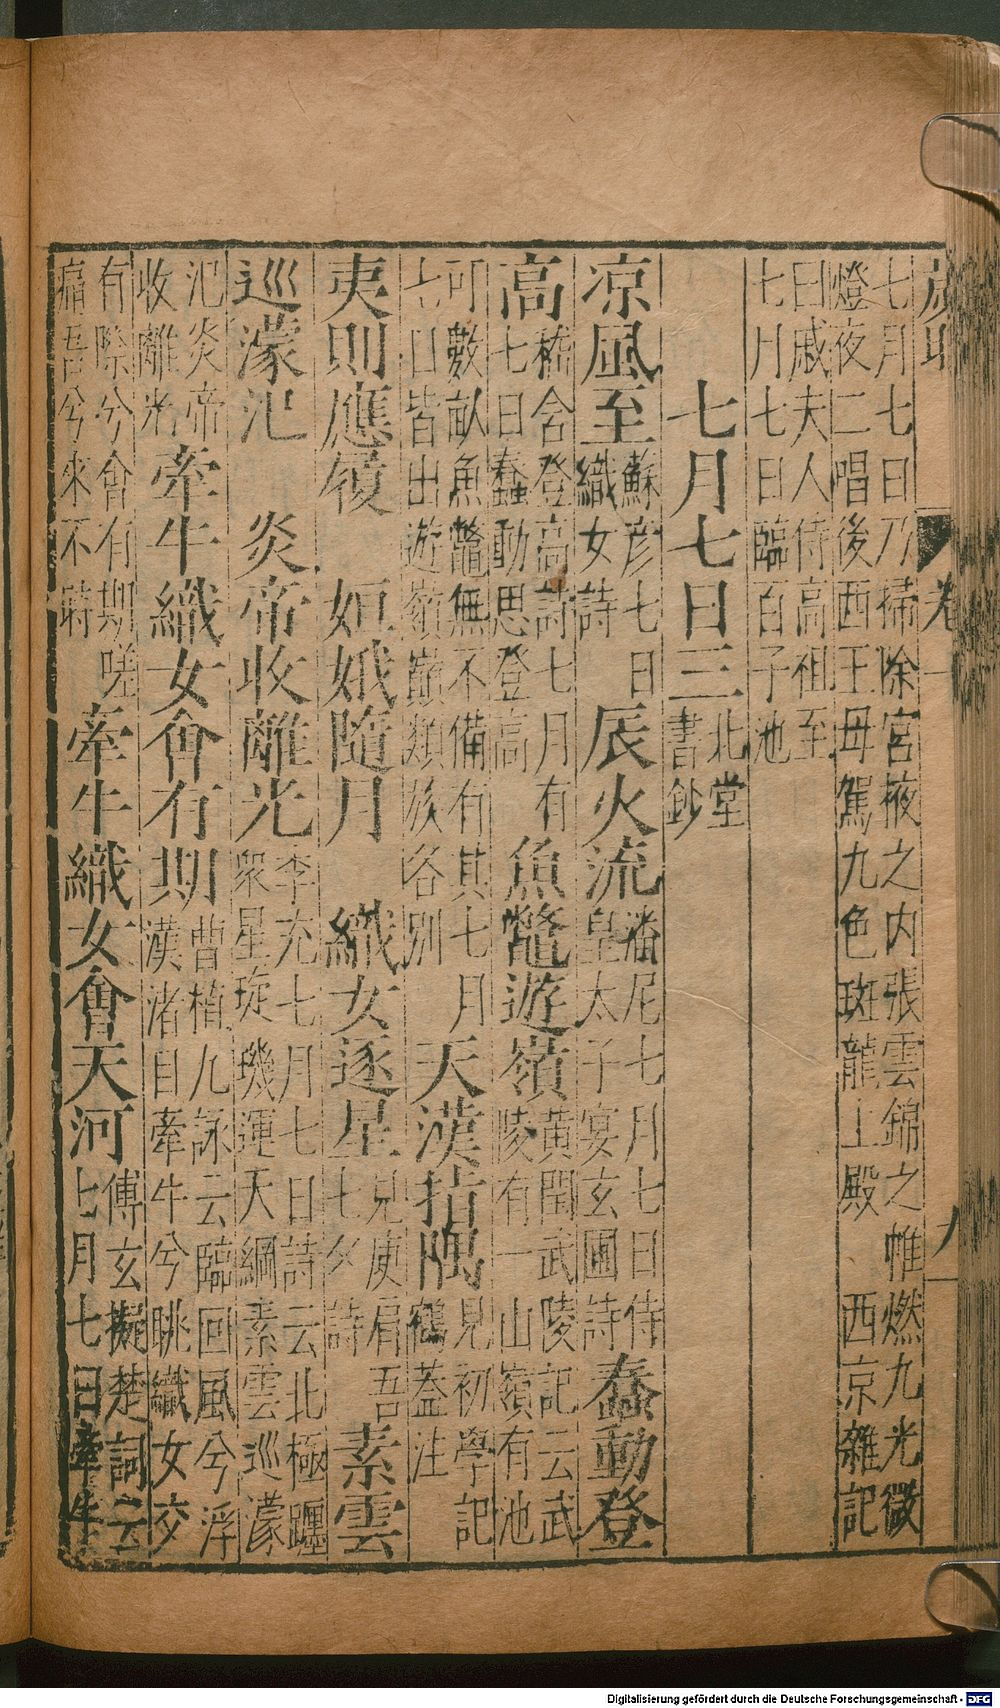 歲時 卷一 九
七月七日乃掃除宮掖之內張雲錦之帷燃九光微
燈夜二唱後西王母駕九色斑龍上殿 西京雜記
曰戚夫人侍高祖至
七月七日臨百子池
七月七日三 北堂書鈔
凉風至 蘇彦七日織女詩 辰火流 潘尼七月七日侍皇太子宴玄圃詩 蠢動登
高 嵇含登高詩七月有七日蠢動思登高 魚鼈遊嶺 黃閔武陵記云武陵有一山嶺有池
可數畝魚鼈無不備有其七月七日皆出遊嶺巔類族各別 天漢指隅 見初學記鶴蓋注
夷則應履 姮娥隨月 織女逐星 見庾肩吾七夕詩 素雲
巡濛汜 炎帝收離光 李充七月七日詩云北極躔衆星琁璣運天綱素雲巡濛
汜炎帝收離光 牽牛織女會有期 曹植九詠云臨回風兮浮漢渚目牽牛兮眺織女交
有際兮會有期嗟痛吾兮來不時 牽牛織女會天河 傅玄擬楚詞云七月七日牽牛
Digitalisierung gefördert durch die Deutsche Forschungsgemeinschaft - DFG